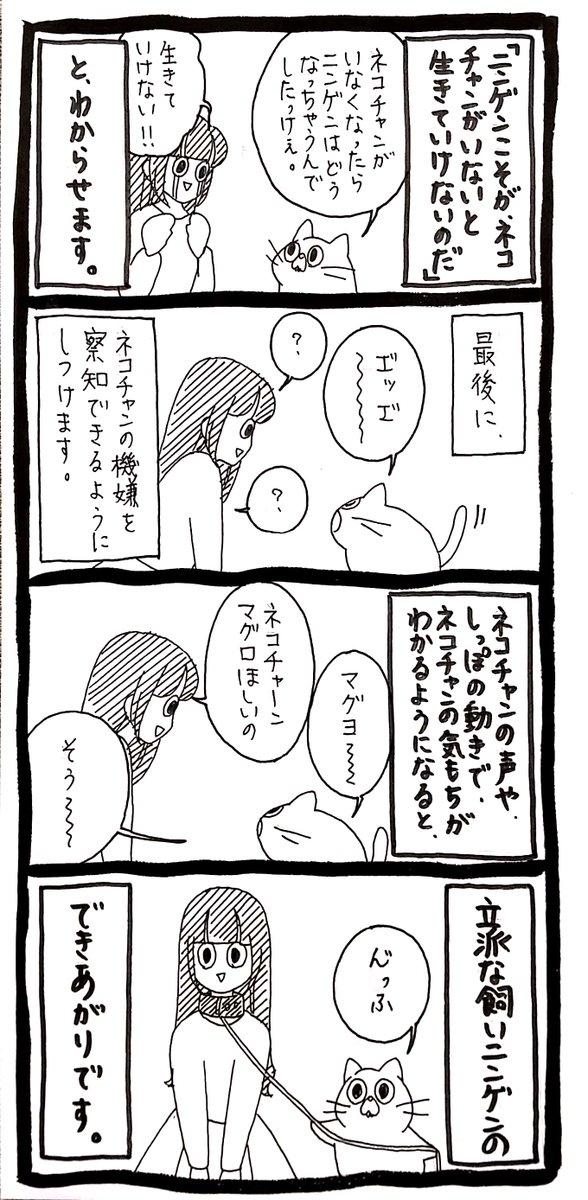 「ニンゲンこそが、ネコ
チャンがいないと
生きていけないのだ」
ネコチャンが
いなくなったら
ニンゲンはどう
なっちゃうんで
したっけぇ。
生きて
いけない!!
と、わからせます。
最後に、
エッエ〜〜〜
?
?
ネコチャンの機嫌を
察知できるように
しつけます。
ネコチャンの声や、
しっぽの動きで、
ネコチャンの気もちが
わかるようになると、
マグヨ〜〜
ネコチャーン
マグロほしいの
そう〜〜
立派な飼いニンゲンの
んふっ
できあがりです。